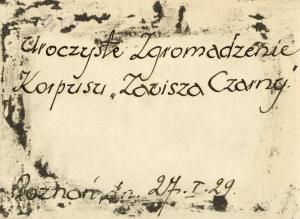 Uroczyste Zgromadzenie
Korpusu „Zawisza Czarny.”
Poznań, dn. 27. I. 29.